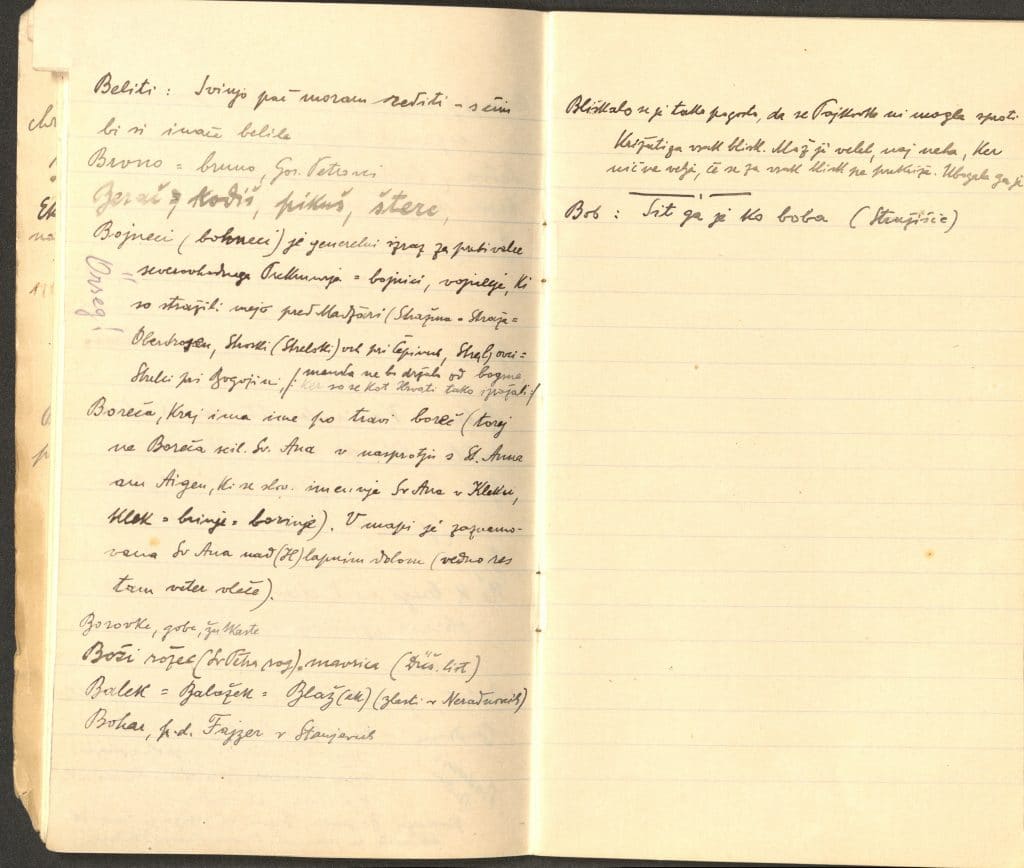 Beliti : Svinjo pač moram srediti - s čim
bi si inače belila
Brvno = bruno, Gor. Petrovci
Beraš = kodiš, pikuš, štere,
Bojneci (bohneci) je generalni izraz za prebivalce
severovzhodnega Prekmurja = bojnici, vojellje, ki
so stražili mejo pred Madžari (Stražna = Straža =
Oberdrosen, Strotki (Strelski) vrh pri Čepincih, Streljovci =
Strelci pri Bogojini, /: menda ne bo držalo od bogme
ker so se kot Hrvati tako izražali :/
Őrség!
Boreča, Kraj ima ime po travi boreč (torej
na Boreča scil. Sv. Ana v nasprotju s St. Anna
am Aigen, ki se slov. imenuje Sv Ana v Kleku,
Klek = brinje = borinje). V mapi je zaznamo-
vana Sv Ana nad (H)lapnim dolom (vedno res
tam veter vleče).
Borovke, gobe, žutkaste
Boži rožec (Sv Petra rog) = mavrica (Düš. list)
Balek = Balažek = Blaž(ek) (zlasti v Neradnovcih)
Bohar, p.d. Fajzer v Stanjevcih
Bliskalo se je tako pogosto, da se Pajkovka ni mogla sproti
križati za vsak blisk. Mož je velel, naj neha, ker
nič ne velja, če se za vsak blisk ne prekriža. Ubogala ga je
Bob : Sit ga je ko boba (Stražišče)